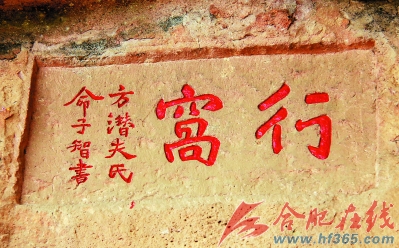 行窩
方潜夫氏
命子智書
合肥在线
www.hf365.com